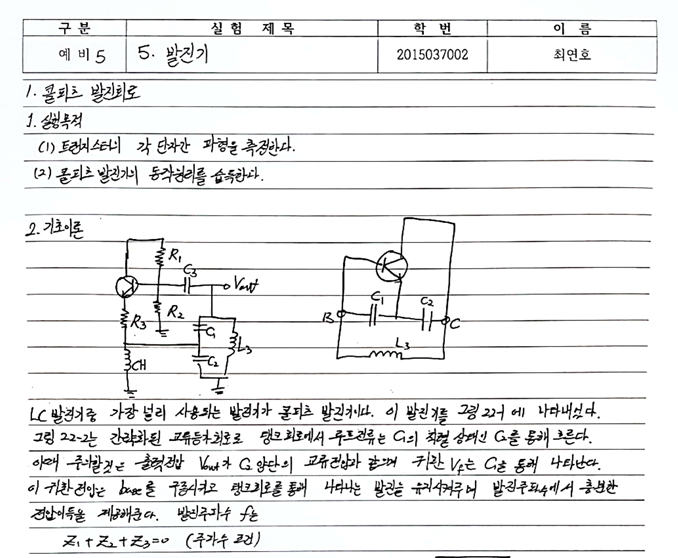 구 분 실 험 제 목 학 번 이 름
예 비 5 5. 발진기 2015037002 최연호
1. 콜피츠 발진회로
1. 실험목적
(1) 트랜지스터의 각 단자간 파형을 측정한다.
(2) 콜피츠 발진기의 동작원리를 습득한다.
2. 기초이론
R1
C3
Vout
R3
R2
C1
C2
L3
CH
B
C1
C2
C
L3
LC 발진기중 가장 널리 사용되는 발진기가 콜피츠 발진기이다. 이 발진기를 그림 22-1 에 나타내었다.
그림 22-2는 간략화된 교류등가회로로 탱크회로에서 루프전류는 C1의 직렬 상태인 C2를 통해 흐른다.
이때 주의할것은 출력전압 Vout가 C1 양단의 교류전압과 같으며 귀환 Vf는 C2을 통해 나타난다.
이 귀환전압은 base를 구동시키고 탱크회로를 통해 나타나는 발진을 유지시켜주며 발진주파수에서 충분한
전압이득을 제공해준다. 발진주파수 f는
Z1 + Z2 + Z3 = 0 (주파수 조건)